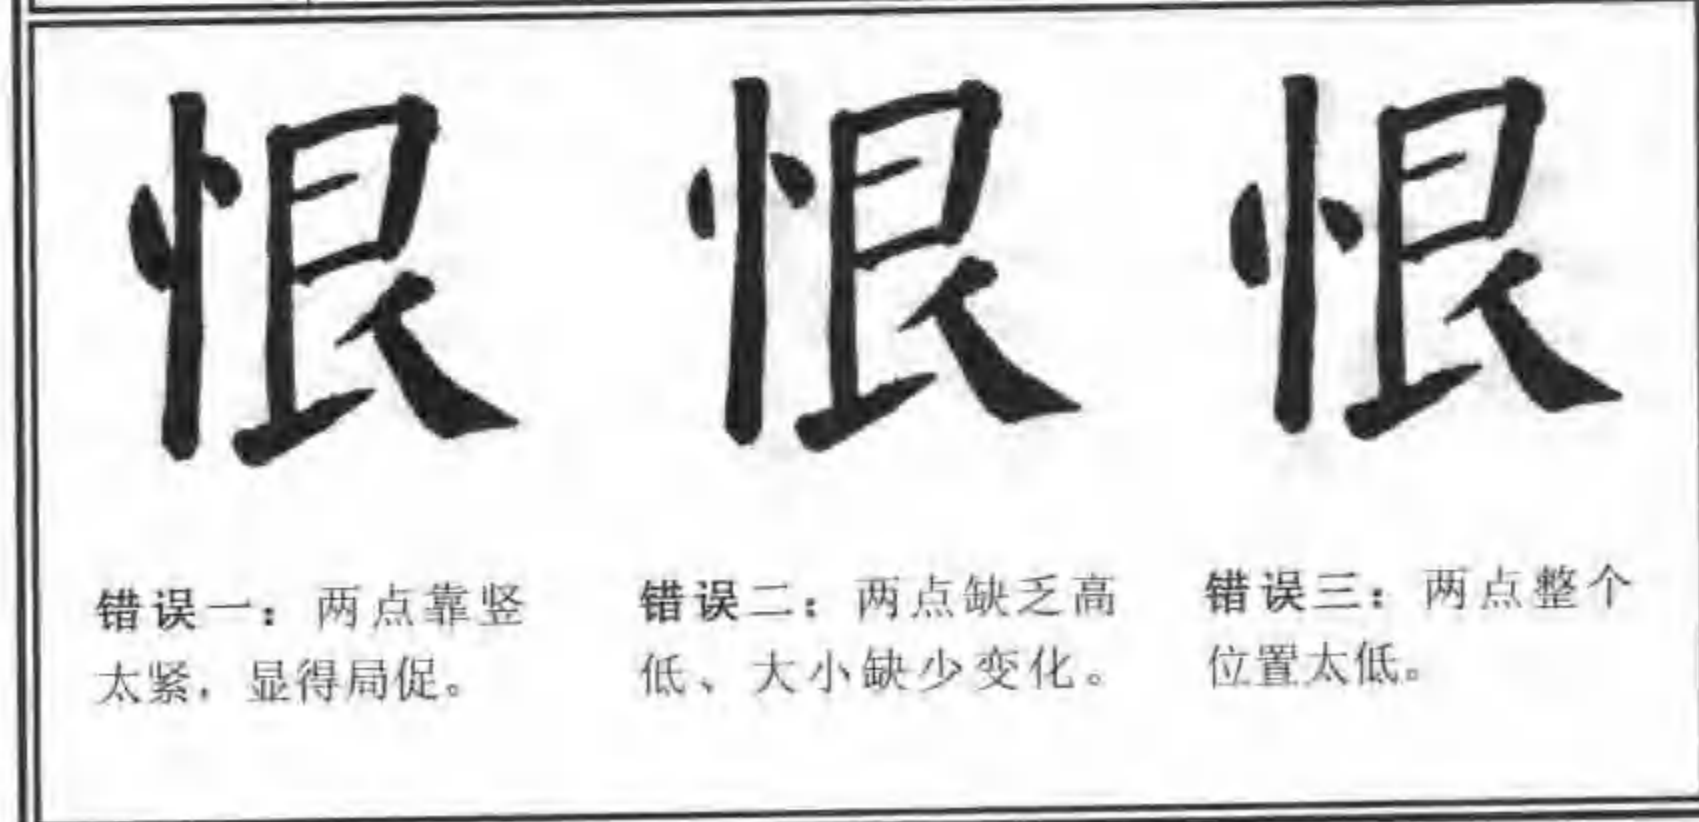 恨 恨 恨
错误一：两点靠竖
太紧，显得局促。
错误二：两点缺乏高
低、大小缺少变化。
错误三：两点整个
位置太低。